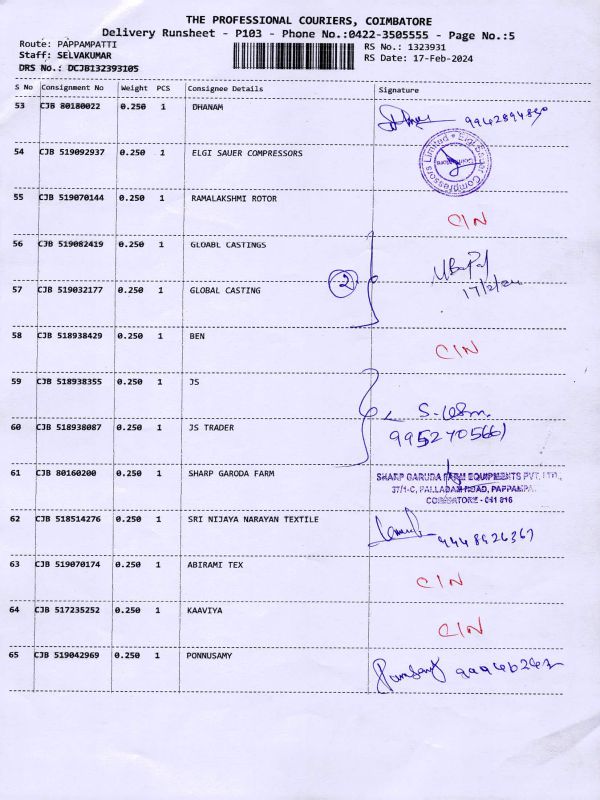 THE PROFESSIONAL COURIERS, COIMBATORE
Delivery Runsheet - P103 - Phone No.:0422-3505555 - Page No.:5
Route: PAPPAMPATTI
RS No.: 1323931
Staff: SELVAKUMAR
RS Date: 17-Feb-2024
DRS No.: DCJB132393105
S No Consignment No Weight PCS Consignee Details Signature
53 CJB 80180022 0.250 1 DHANAM
54 CJB 519092937 0.250 1 ELGI SAUER COMPRESSORS
Elgi Sauer Compressors Limited
55 CJB 519070144 0.250 1 RAMALAKSHMI ROTOR
CIN
56 CJB 519082419 0.250 1 GLOABL CASTINGS
2
57 CJB 519032177 0.250 1 GLOBAL CASTING
17/2/24
58 CJB 518938429 0.250 1 BEN
CIN
59 CJB 518938355 0.250 1 JS
60 CJB 518938087 0.250 1 JS TRADER
9952705661
61 CJB 80160200 0.250 1 SHARP GARODA FARM
SHARP GARUDA FARM EQUIPMENTS PVT. LTD.,
37/1-C, PALLADAM ROAD, PAPPAMPA
COIMBATORE - 641 016
62 CJB 518514276 0.250 1 SRI NIJAYA NARAYAN TEXTILE
63 CJB 519070174 0.250 1 ABIRAMI TEX
CIN
64 CJB 517235252 0.250 1 KAAVIYA
CIN
65 CJB 519042969 0.250 1 PONNUSAMY